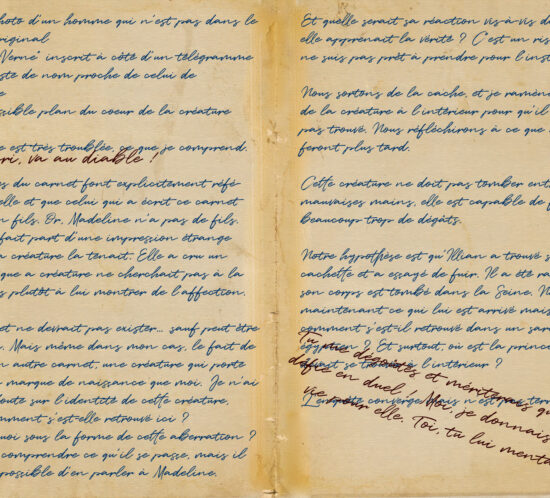 hoto d'un homme qui n'est pas dans le
riginal
Verne" inscrit à côté d'un télégramme
ste de nom proche de celui de
e
ssible plan du coeur de la créature
e est très troublée, ce que je comprend.
ri, va au diable !
s du carnet font explicitement réfé
elle et que celui qui a écrit ce carnet
n fils. Dr. Madeline n'a pas de fils.
fait part d'une impression étrange
a créature la tenait. Elle a cru un
que a créature ne cherchait pas à la
s plutôt à lui montrer de l'affection.
et ne devrait pas exister... sauf peut être
. Mais même dans mon cas, le fait de
n autre carnet, une créature qui porte
marque de naissance que moi. Je n'ai
oute sur l'identité de cette créature,
mment s'est-elle retrouvé ici ?
uoi sous la forme de cette aberration ?
comprendre ce qu'il se passe, mais il
possible d'en parler à Madeline.
Et quelle serait sa réaction vis-à-vis d
elle apprenait la vérité ? C'est un ris
ne suis pas prêt à prendre pour l'inst
Nous sortons de la cache, et je ramèn
de la créature à l'intérieur pour qu'il
pas trouvé. Nous réfléchirons à ce que
feront plus tard.
Cette créature ne doit pas tomber ent
mauvaises mains, elle est capable de f
beaucoup trop de dégâts.
Notre hypothèse est qu'Illian a trouvé s
cachette et a essayé de fuir. Il a été ra
son corps est tombé dans la Seine. N
maintenant ce qui lui est arrivé mais
comment s'est-il retrouvé dans un sar
égyptien ? Et surtout, où est la prince
se à l'intérieur ?
L'enquête converge. Mais n'est pas term
Tu me dégoutes et mériterais q
défie en duel. Moi, je donnais
vie pour elle. Toi, tu lui menta